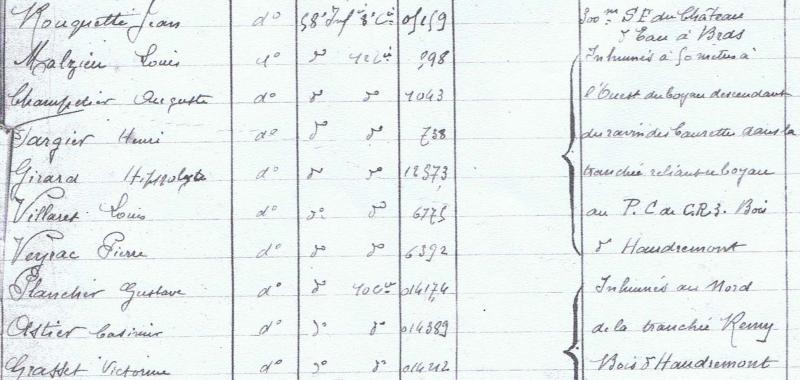 Rouquette Jean d° 58e Inf 8e Cie 05159 300m SE du Château
d'Eau à Bras
Malzieu Louis d° d° 12 Cie 98 Inhumés à 50 mètres à
Champedier Auguste d° d° d° 1043 l'Ouest du boyau descendant
Jargier Henri d° d° d° 738 du ravin des Caurettes dans la
Girard Hippolyte d° d° d° 12573 tranchée reliant au boyau
Villaret Louis d° d° d° 6775 au P.C de C.R.3. Bois
Veyrac Pierre d° d° d° 6392 d'Haudremont
Plancher Gustave d° d° 10 Cie 014174 Inhumés au Nord
Astier Casimir d° d° d° 014389 de la tranchée Remy
Grasset Victorine d° d° d° 014212 Bois d'Haudremont